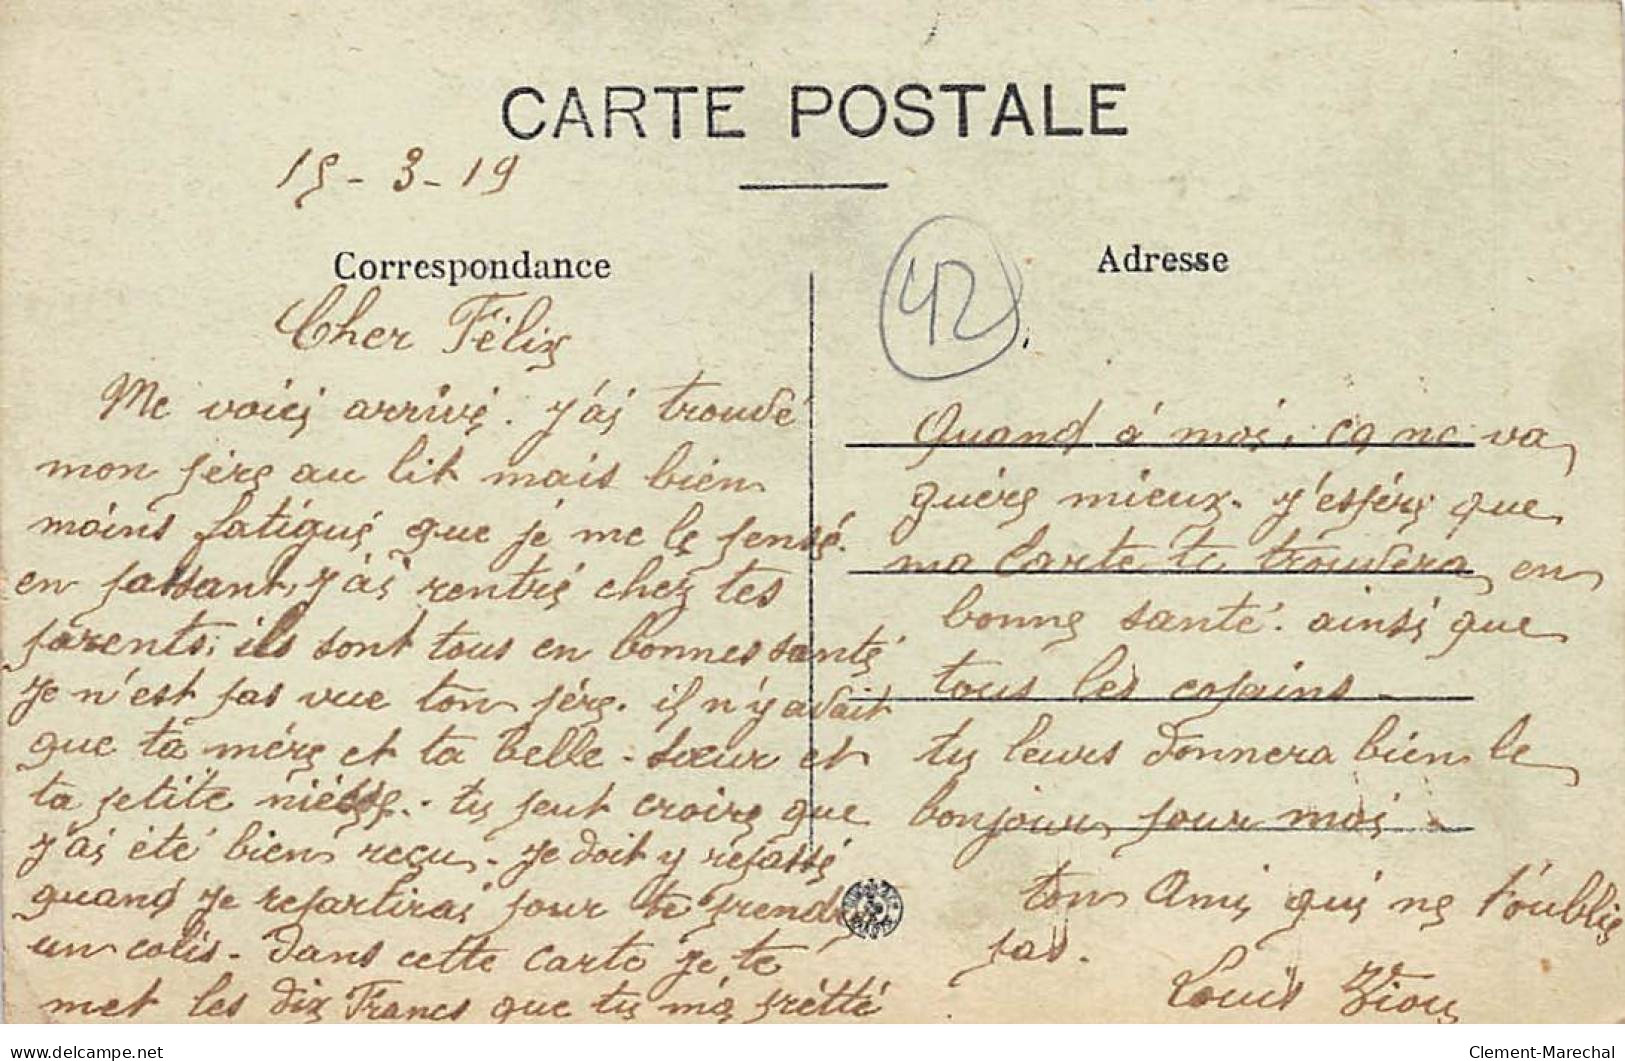 CARTE POSTALE
15-3-19
Correspondance
Cher Félix
Me voici arrivé. j'ai trouvé
mon père au lit mais bien
moins fatigué que je me le pensé.
en passant, j'ai rentré chez tes
parents, ils sont tous en bonnes santé
Je n'est pas vue ton père. il n'y avait
que ta mère et ta belle-sœur et
ta petite nièsse. tu peut croire que
j'ai été bien reçu. Je doit y repassé
quand je repartirai pour te prendre
un colis. Dans cette carte je te
met les dix Francs que tu m'a prêtté
Adresse
42
Quand à moi, ça ne va
guère mieux. j'espère que
ma Carte te trouvera en
bonne santé. ainsi que
tous les copains -
tu leurs donnera bien le
bonjour pour moi
ton Ami qui ne t'oublie
pas.
Louis
delcampe.net
Clement-Marechal